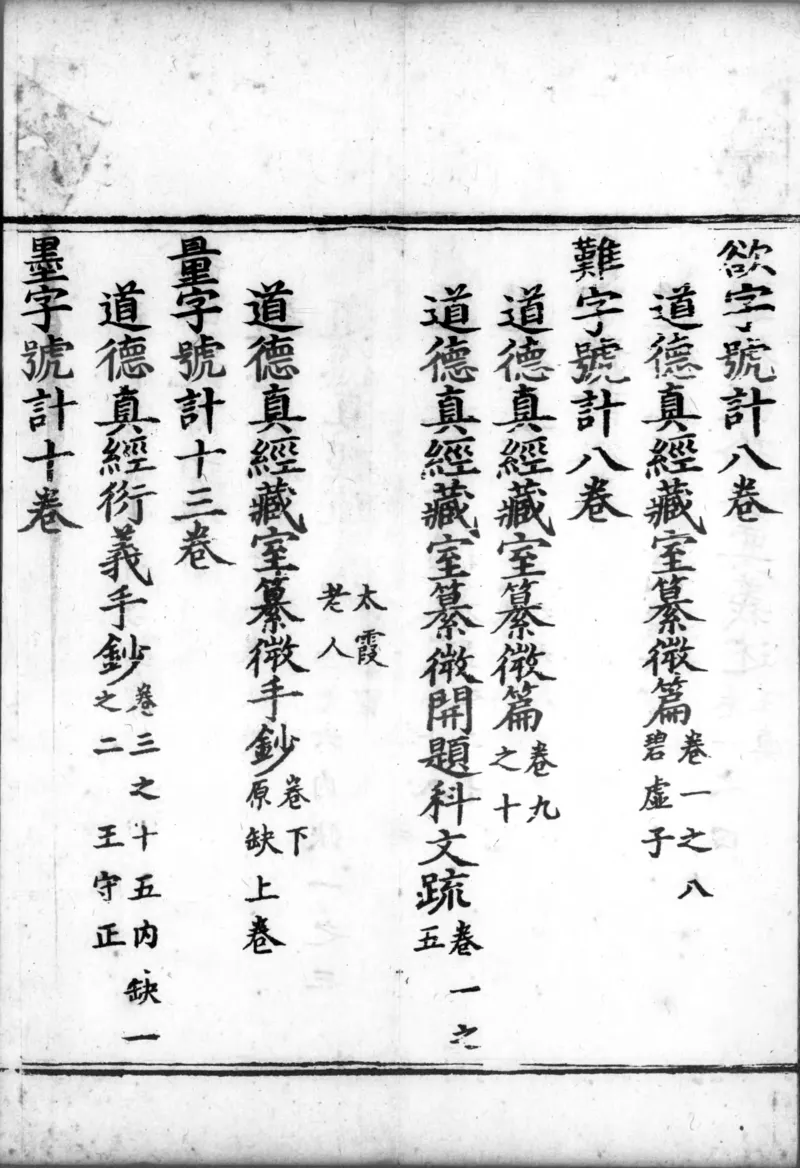 欲字號計八卷
道德真經藏室纂微篇 卷一之八 碧虛子
難字號計八卷
道德真經藏室纂微篇 卷九之十
道德真經藏室纂微開題科文疏 卷一之五
太霞老人
道德真經藏室纂微手鈔 卷下 原缺上卷
量字號計十三卷
道德真經衍義手鈔 卷三之十五內缺一之二 王守正
墨字號計十卷